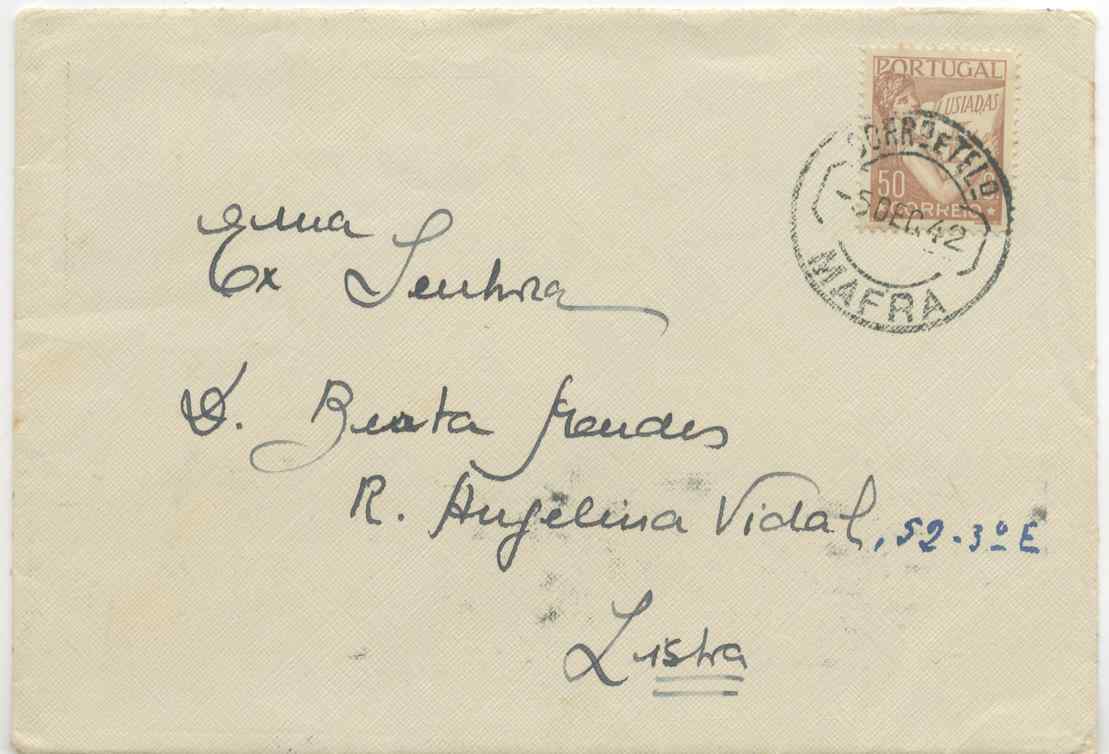 PORTUGAL
LUSIADAS
50 C
CORREIO
-5 DEC. 42
MAFRA
Exma
Senhora
D. Berta
R. Angelina Vidal, 52-3º E
Lisboa